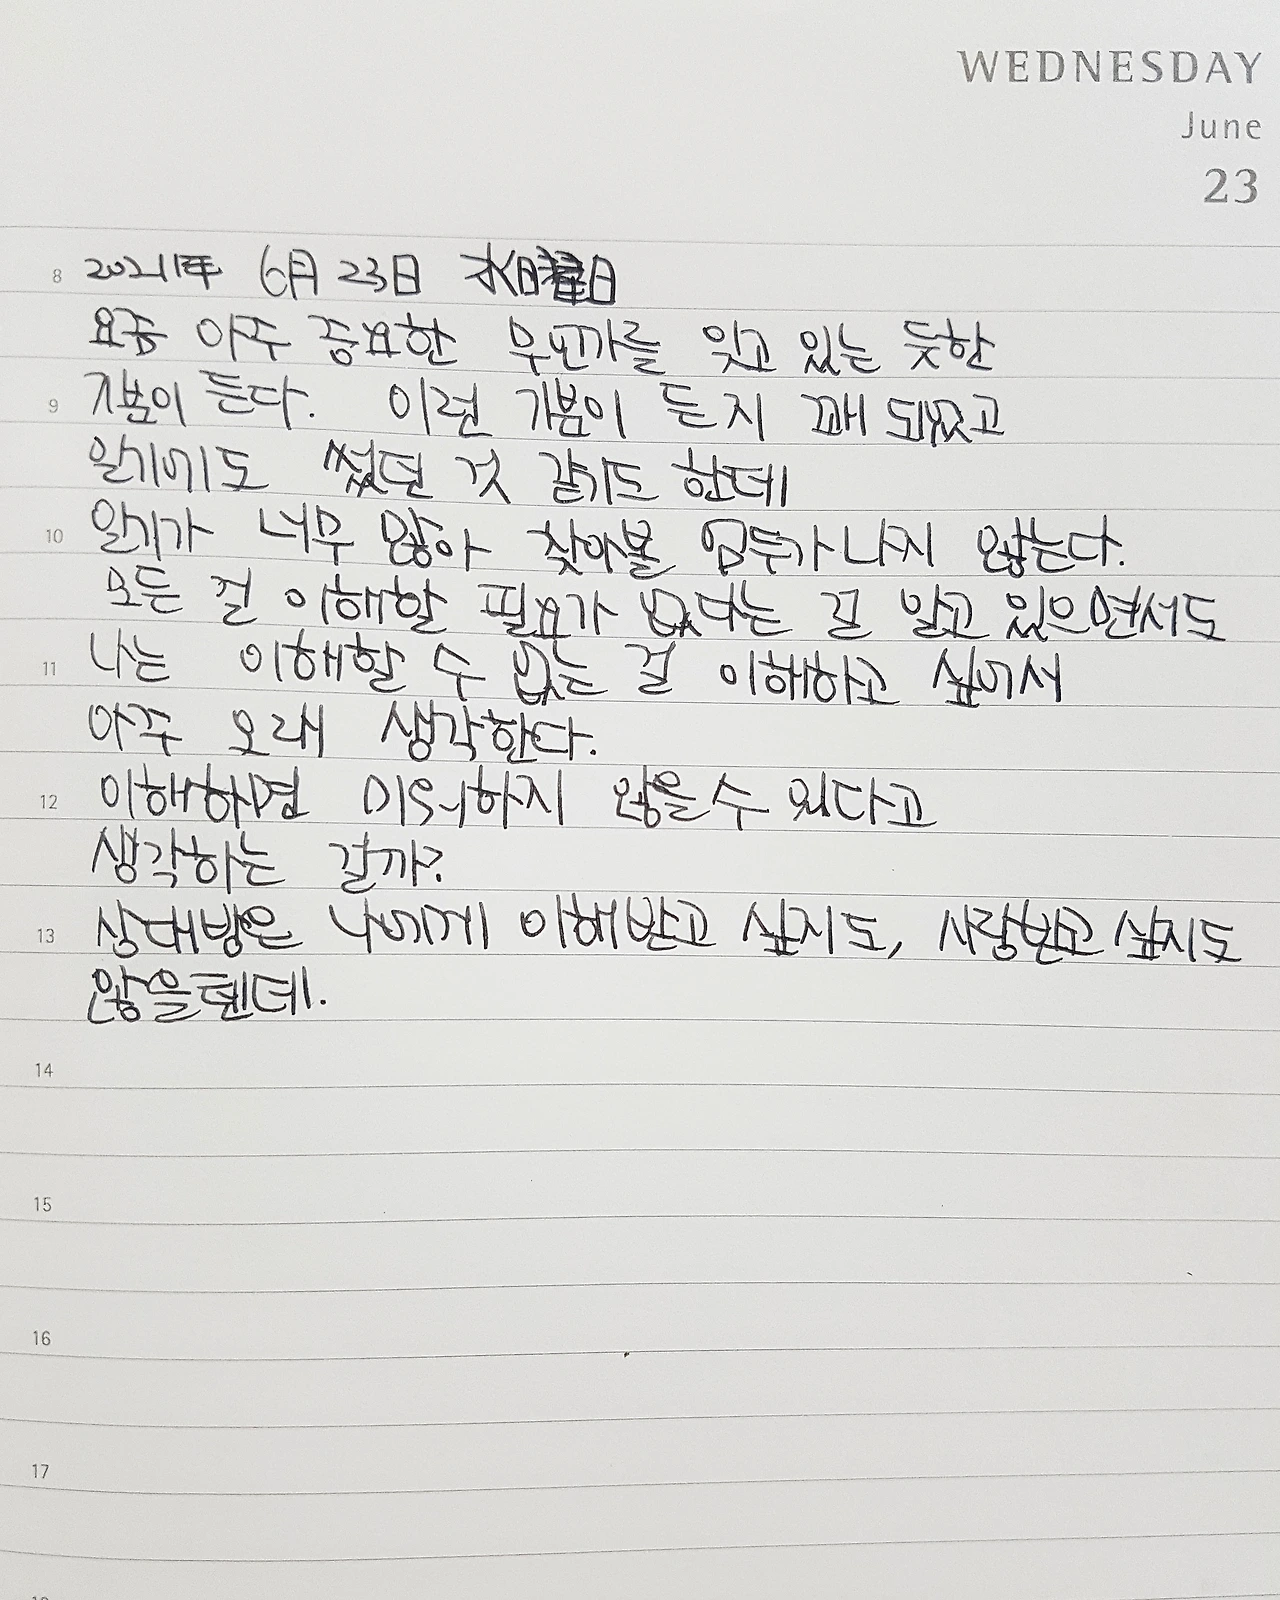 WEDNESDAY
June
23
8 2021年 6月 23日 水曜日
요즘 아주 중요한 무언가를 잊고 있는 듯한
9 기분이 든다. 이런 기분이 든 지 꽤 되었고
일기에도 썼던 것 같기도 한데
10 일기가 너무 많아 찾아볼 엄두가 나지 않는다.
모든 걸 이해할 필요가 없다는 걸 알고 있으면서도
11 나는 이해할 수 없는 걸 이해하고 싶어서
아주 오래 생각한다.
12 이해하면 미워하지 않을 수 있다고
생각하는 걸까?
13 상대방은 나에게 이해받고 싶지도, 사랑받고 싶지도
않을텐데.
14
15
16
17